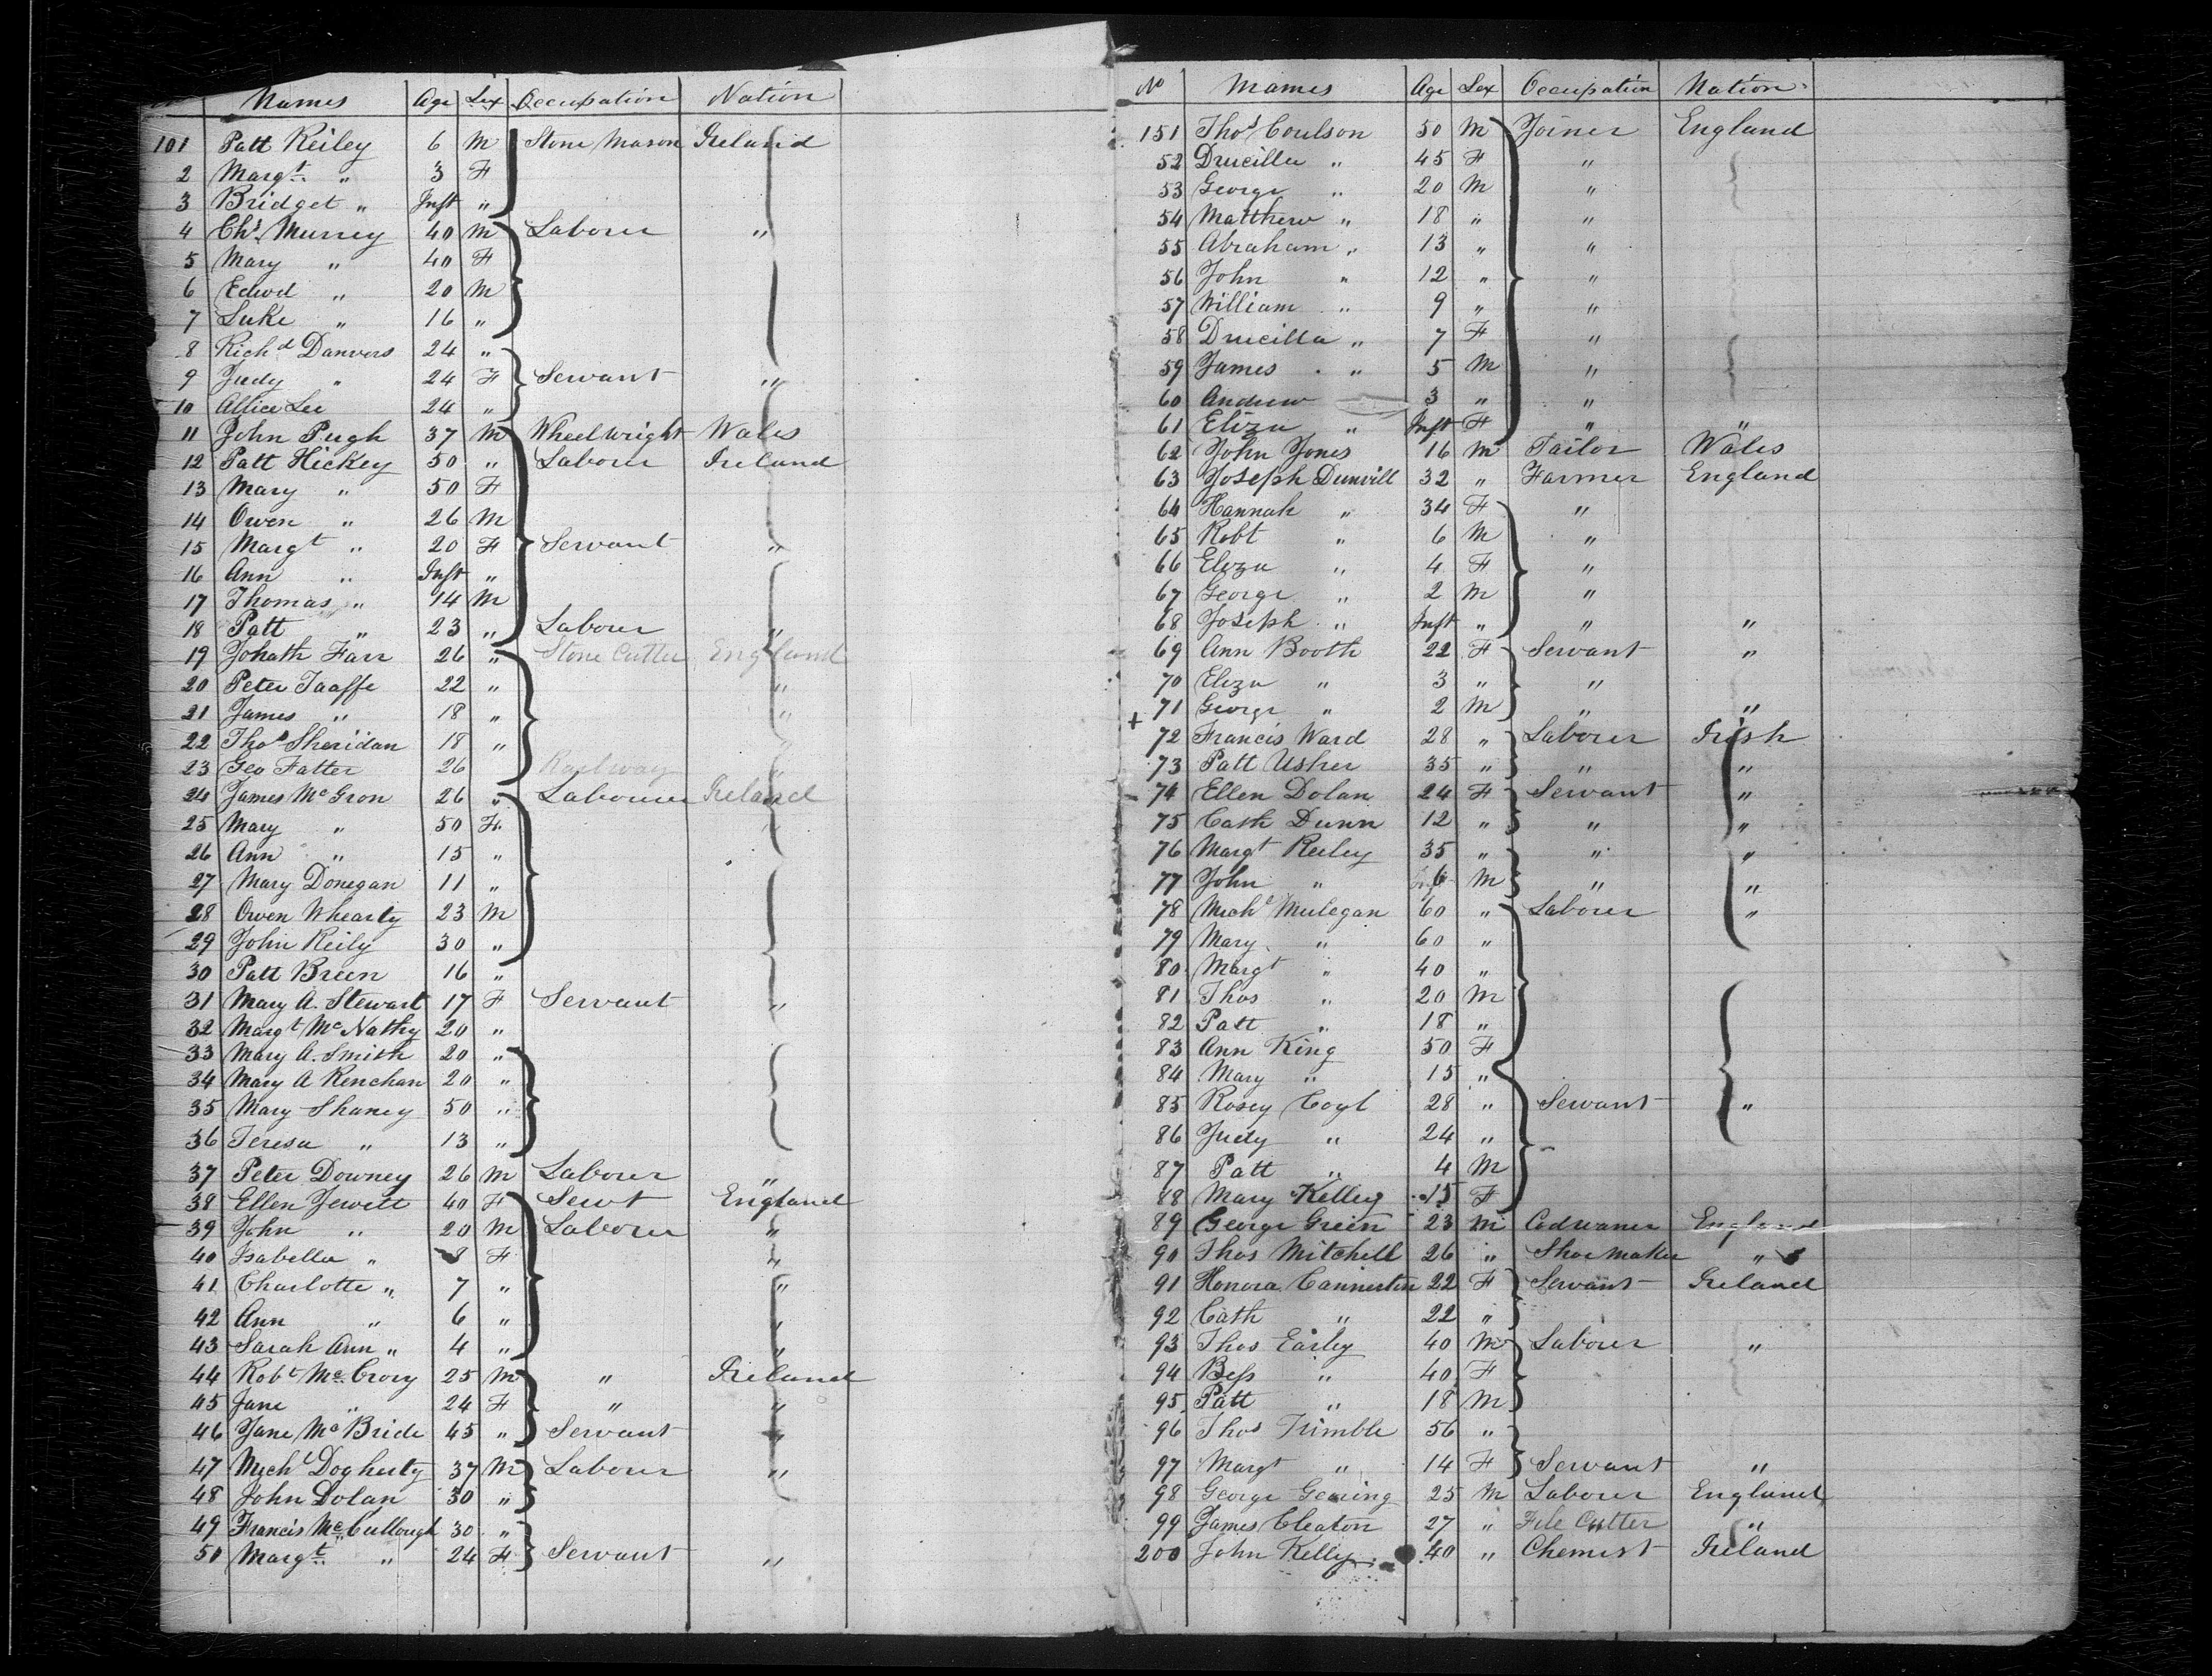 Names Age Sex Occupation Nation
101 Patt Keiley 6 M Stone Mason Ireland
2 Margt. " 3 F
3 Bridget " Inft "
4 Chs. Murrey 40 M Labourer "
5 Mary " 40 F
6 Edwd " 20 M
7 Luke " 16 "
8 Richd Danvers 24 "
9 Judy " 24 F Servant "
10 Allice Lee 24 "
11 John Pugh 37 M Wheelwright Wales
12 Patt Hickey 50 " Labourer Ireland
13 Mary " 50 F
14 Owen " 26 M
15 Margt " 20 F Servant "
16 Ann " Inft "
17 Thomas " 14 M
18 Patt " 23 " Labourer "
19 Johath Farr 26 " Stone Cutter England
20 Peter Taaffe 22 " "
21 James " 18 " "
22 Thos Sheridan 18 " "
23 Geo Fatter 26 Railway "
24 James McGron 26 " Labourer Ireland
25 Mary " 50 F "
26 Ann " 15 "
27 Mary Donegan 11 "
28 Owen Whearty 23 M
29 John Reily 30 "
30 Patt Breen 16 "
31 Mary A. Stewart 17 F Servant "
32 Margt McNathy 20 "
33 Mary A. Smith 20 "
34 Mary A Renchan 20 "
35 Mary Shaney 50 "
36 Teresa " 13 "
37 Peter Downey 26 M Labourer "
38 Ellen Jewett 40 F Servt England
39 John " 20 M Labourer "
40 Isabella " 8 F "
41 Charlotte " 7 " "
42 Ann " 6 " "
43 Sarah Ann " 4 " "
44 Robt McCrory 25 M " Ireland
45 Jane " 24 F " "
46 Jane McBride 45 " Servant "
47 Michl Dogherty 37 M Labourer "
48 John Dolan 30 "
49 Francis McCullough 30 "
50 Margt. " 24 F Servant "
No Names Age Sex Occupation Nation
151 Thos Coulson 50 M Joiner England
52 Drucilla " 45 F "
53 George " 20 M "
54 Matthew " 18 " "
55 Abraham " 13 " "
56 John " 12 " "
57 William " 9 " "
58 Drucilla " 7 F "
59 James " 5 M "
60 Andrew 3 " "
61 Eliza " Inft F " "
62 John Jones 16 M Tailor Wales
63 Joseph Dunvill 32 " Farmer England
64 Hannah " 34 F "
65 Robt " 6 M "
66 Eliza " 4 F "
67 George " 2 M "
68 Joseph " Inft " " "
69 Ann Booth 22 F Servant "
70 Eliza " 3 " "
71 George " 2 M " "
+ 72 Francis Ward 28 " Labourer Irish
73 Patt Usher 35 " " "
74 Ellen Dolan 24 F Servant "
75 Cath Dunn 12 " " "
76 Margt Reiley 35 " " "
77 John " 6 M " "
78 Michl Mulegan 60 " Labourer "
79 Mary " 60 "
80 Margt " 40 "
81 Thos " 20 M
82 Patt " 18 "
83 Ann King 50 F
84 Mary " 15 "
85 Rosey Coyl 28 " Servant "
86 Judy " 24 "
87 Patt " 4 M
88 Mary Kelley 15 F
89 George Green 23 M Cadwaner England
90 Thos Mitchell 26 " Shoe Maker "
91 Honora Cannerton 22 F Servant Ireland
92 Cath " 22 "
93 Thos Earley 40 M Labourer "
94 Bess " 40 F
95 Patt " 18 M
96 Thos Trimble 56 "
97 Margt " 14 F Servant "
98 George Gening 25 M Labourer England
99 James Cleaton 27 " File Cutter "
200 John Kelly 40 " Chemist Ireland